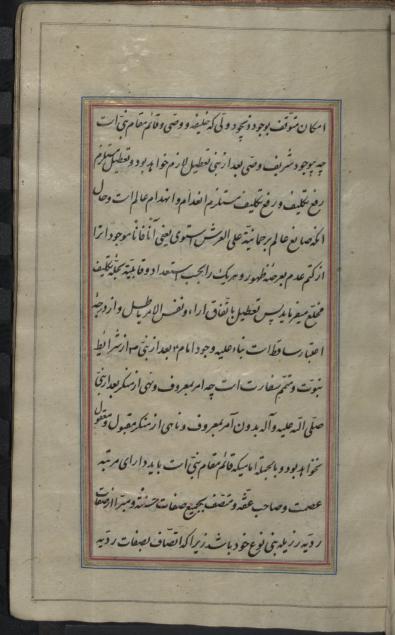 امکان متوقف بوجود ذیجود ولی که خلیفه و وصی و قائم مقام نبی است
چه بی وجود شریف وصی بعد از نبی تعطیل لازم خواهد بود و تعطیل مستلزم
رفع تکلیف و رفع تکلیف مستلزم انعدام و انهدام عالم است و حال
آنکه صانع عالم برحمانیته علی العرش استوی یعنی آناً فاناً موجودات را
از کتم عدم بعرصه ظهور و هر یک را بحسب استعداد و قابلیته بحلیه تکلیف
مخلع میفرماید پس تعطیل باتفاق آراء و نفس الامر باطل و از درجه
اعتبار ساقط است بناء علیه وجود امام بعد از نبی از شرایط
نبوت و متمم سفارت است چه امر بمعروف و نهی از منکر بعد از نبی
صلی الله علیه و آله بدون آمر بمعروف و ناهی از منکر مقبول و معقول
نخواهد بود و بالجمله امامیکه قائم مقام نبی است باید دارای مرتبه
عصمت و صاحب عفة و متصف بجمیع صفات حسنه و مبرا از صفات
ردیه رزیله بنی نوع خود باشد زیرا که اتصاف بصفات ردیه